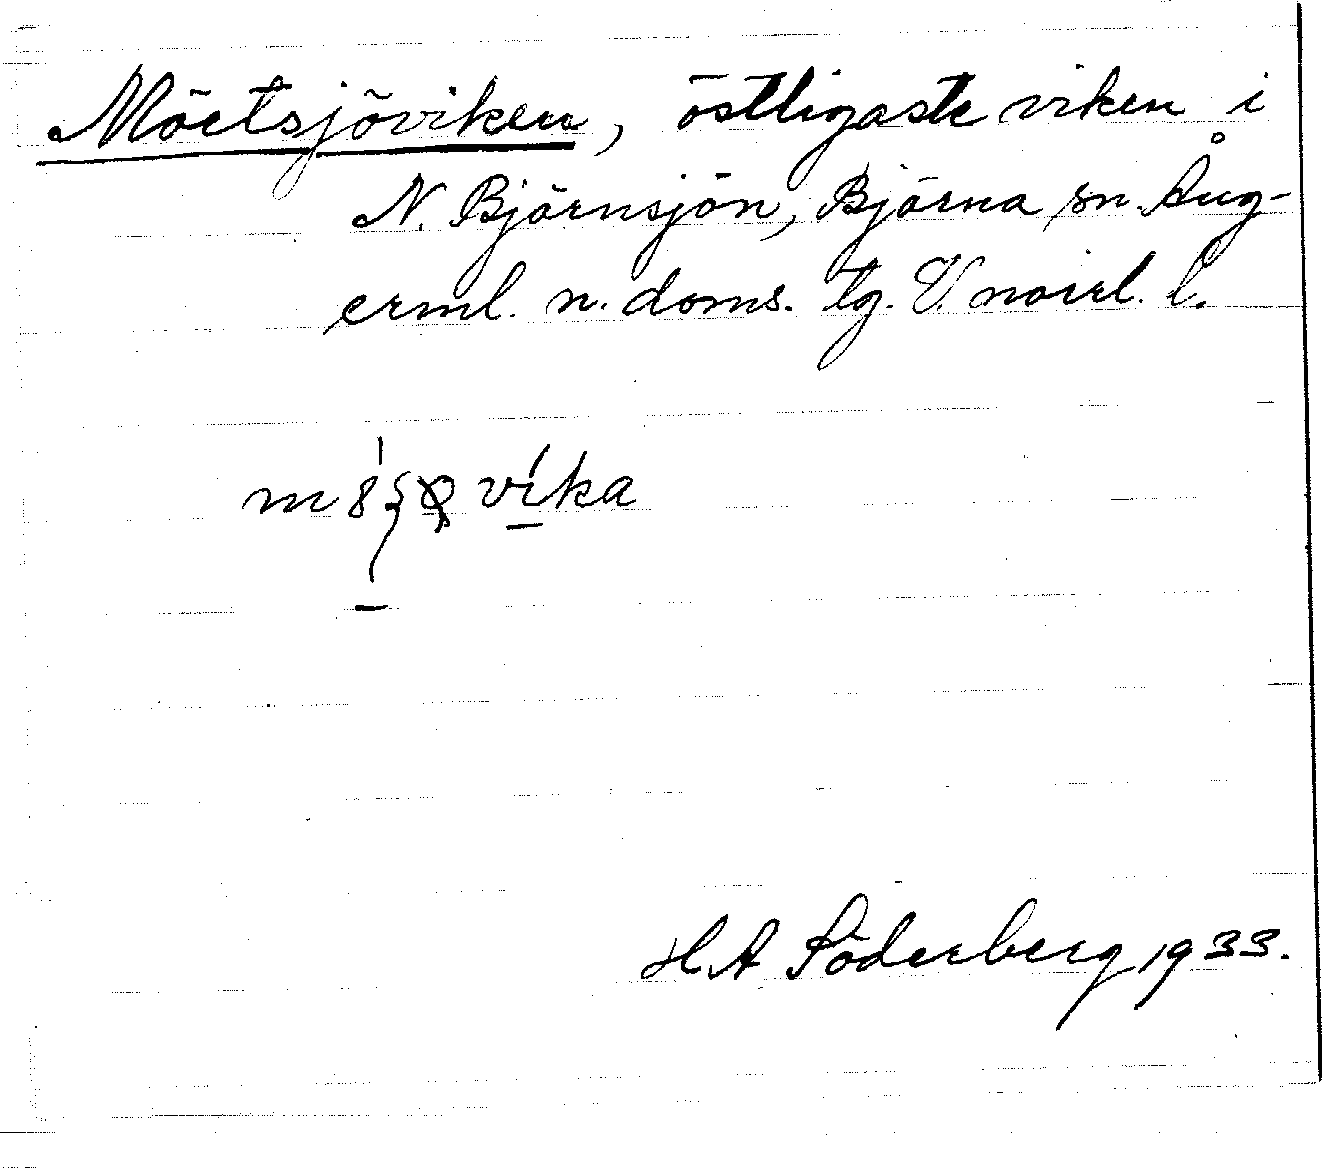 Möetsjöviken, östligaste viken i
N. Björnsjön, Björna sn. Ång-
erml. n. doms. tg. V. norrl. l.
vika
H A Söderberg 1933.